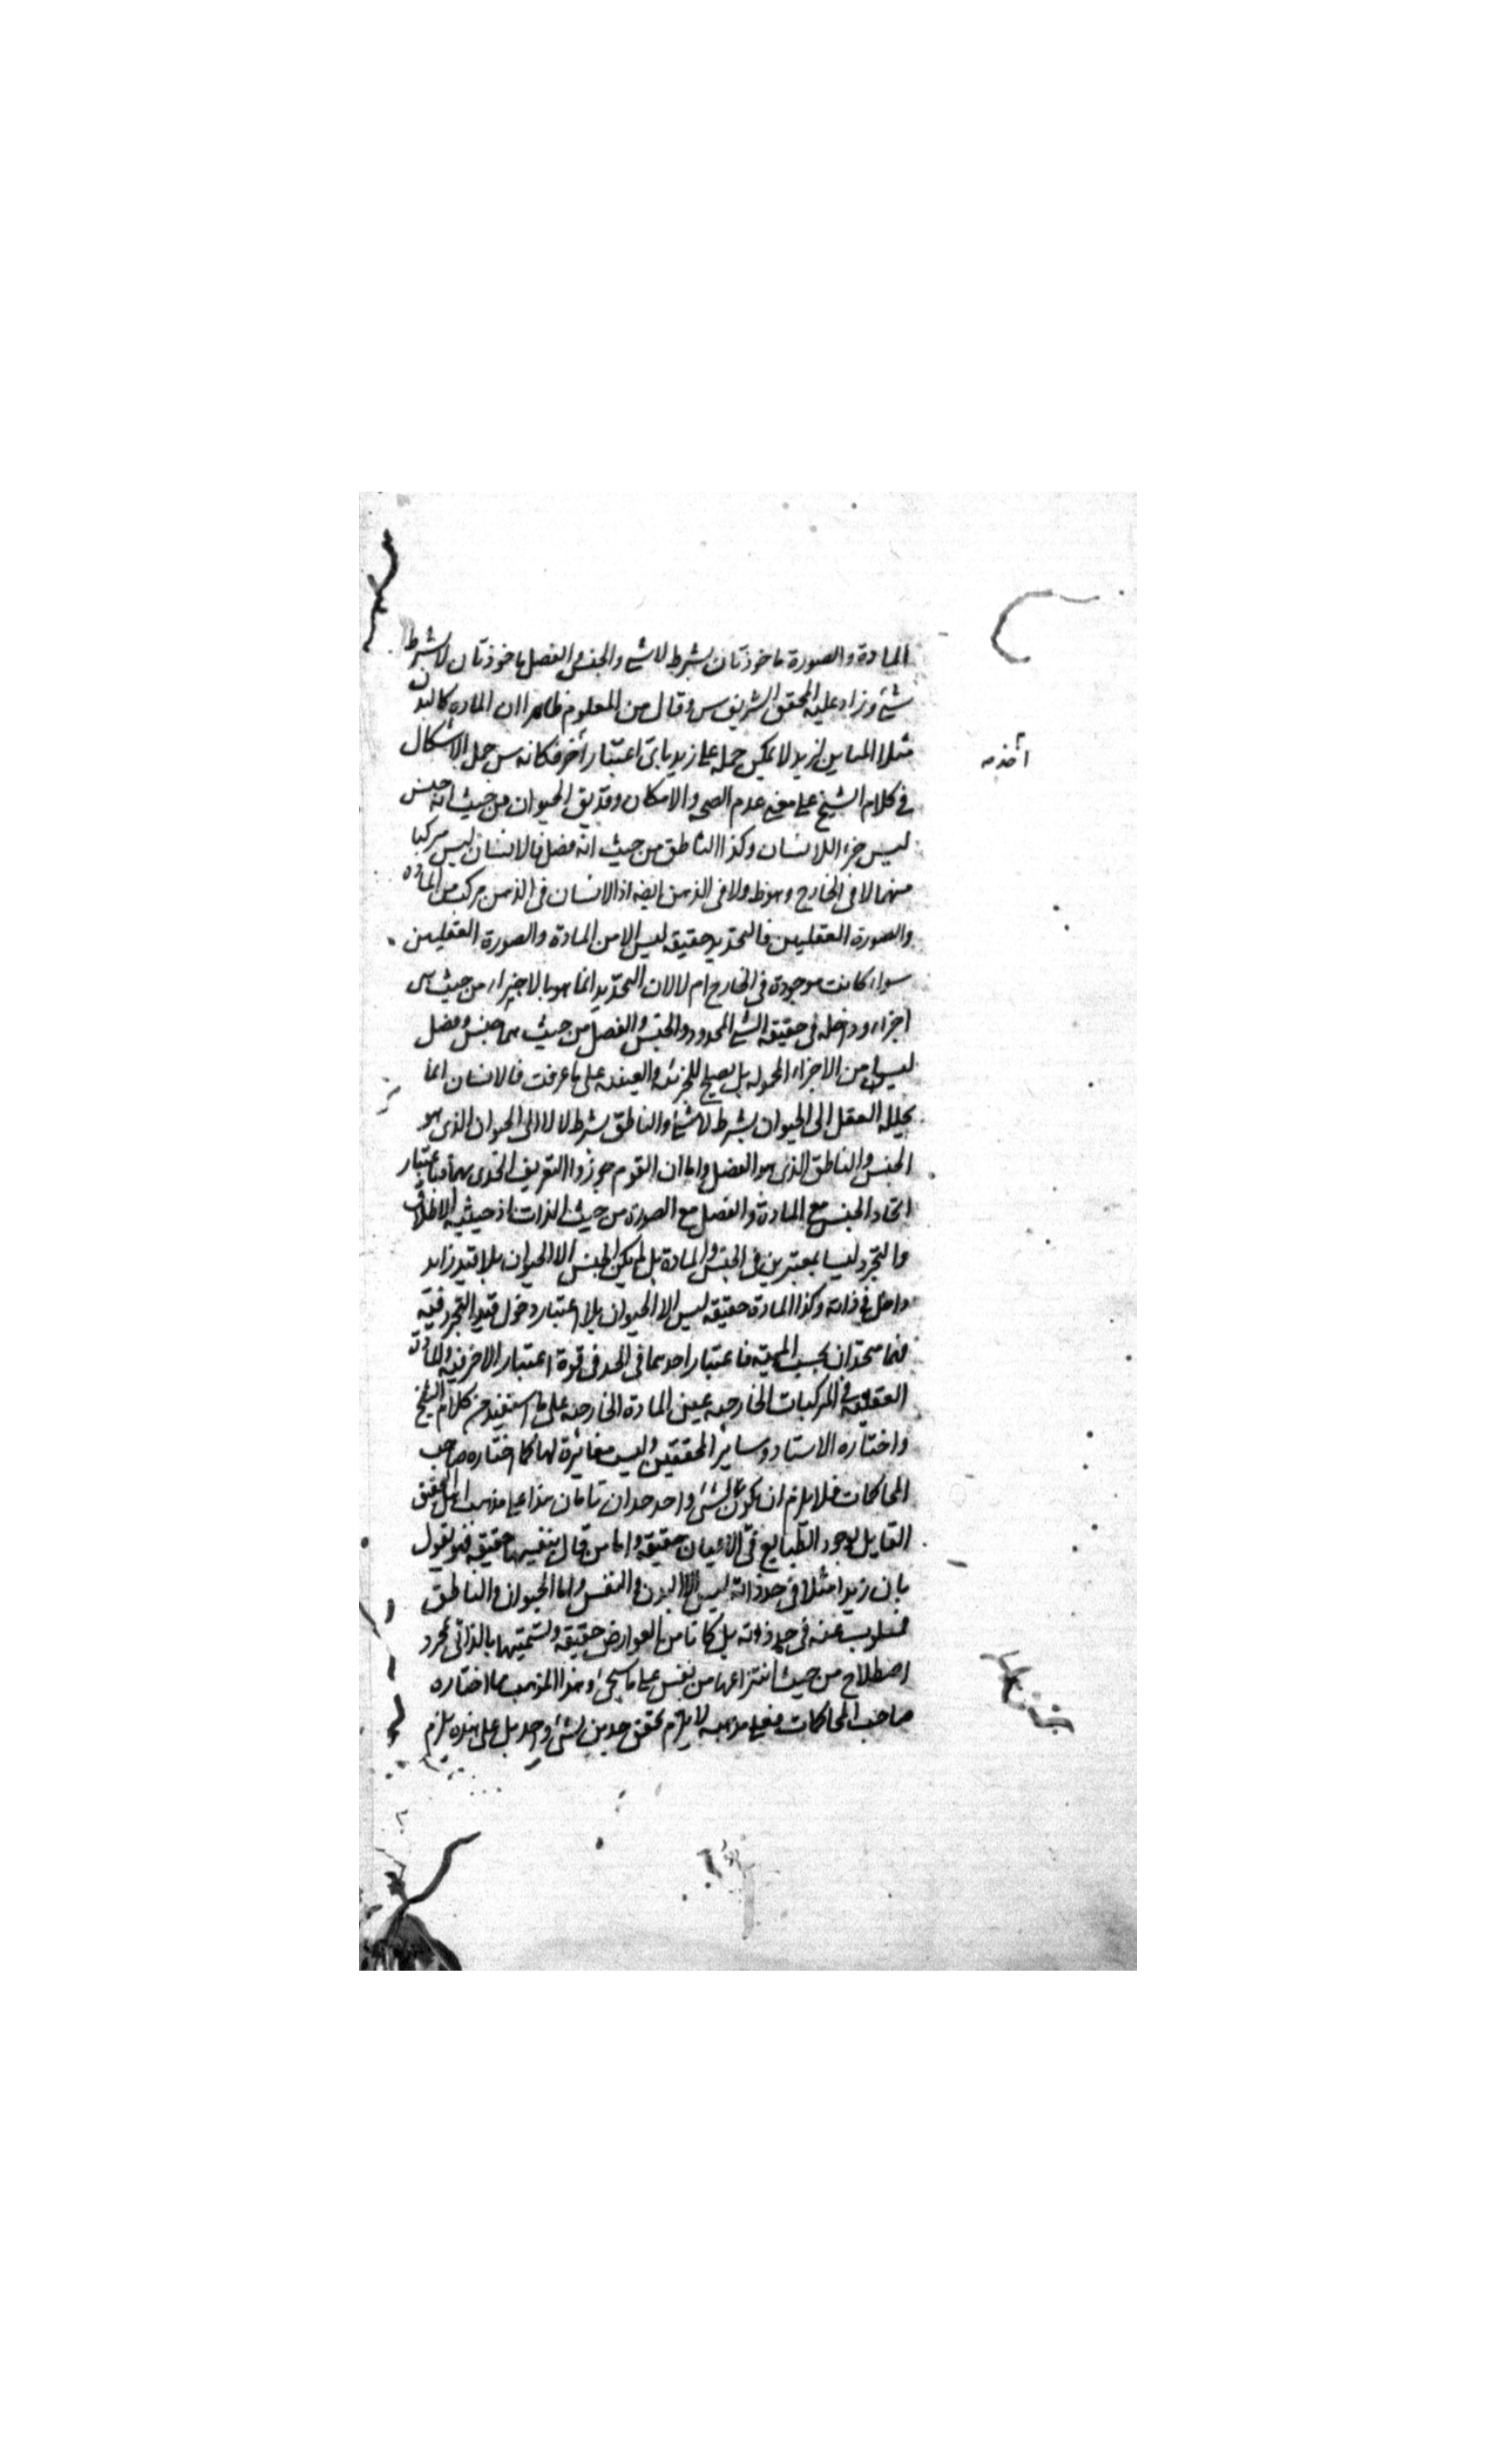 المادة والصورة ماخوذتان بشرط لا شئ والجنس والفصل ماخوذتان لا بشرط
شئ وزاد عليه المحقق الشريف س وقال من المعلوم ظاهرا ان المادة كالبدن
مثلا المباين لزيد لا يمكن حمله على زيد باى اعتبار أخذ فكانه س حمل الاشكال
فى كلام الشيخ على معنى عدم الصحة والامكان وقد يق الحيوان من حيث انه جنس
ليس جزء اللانسان وكذا الناطق من حيث انه فصل فالانسان ليس مركبا
منهما لا فى الخارج وهو ظ ولا فى الذهن ايضه اذ الانسان فى الذهن مركب من المادة
والصورة العقليين فالتحديد حقيقة ليس الا من المادة والصورة العقليين
سواء كانت موجودة فى الخارج ام لا لان التحديد انما هو بالاجزاء من حيث هى
اجزاء وداخلة فى حقيقة الشئ المحدود والجنس والفصل من حيث هما جنس وفصل
ليسا من الاجزاء المحمولة بل يصلح للجزئية والعينية على ما عرفت فالانسان انما
يحلله العقل الى الحيوان بشرط لا شئ والناطق بشرط لا لا الى الحيوان الذى هو
الجنس والناطق الذى هو الفصل واما ان القوم جوزوا التعريف الحدى بهما فباعتبار
اتحاد الجنس مع المادة والفصل مع الصورة من حيث الذات اذ حيثية الاطلاق
والتجرد ليسا بمعتبرين فى الجنس والمادة بل لم يكن الجنس الا الحيوان بلا قيد زايد
داخل فى ذاته وكذا المادة حقيقة ليس الا الحيوان بلا اعتبار دخول قيد التجرد فيه
فهما متحدان بحسب المهية فاعتبار احدهما فى الحد فى قوة اعتبار الاخر فيه والمادة
العقلية فى المركبات الخارجية عين المادة الخارجية على ما استفيد من كلام الشيخ
واختاره الاستاد وساير المحققين وليست مغائرة لها كما اختاره صاحب
المحاكمات فلا يلزم ان يكون لشئ واحد حدان تامان هذا على مذهب اهل التحقيق
القايل بوجود الطبايع فى الاعيان حقيقة واما من قال بنفيها حقيقة فهو يقول
بان زيدا مثلا فى حد ذاته ليس الا البدن والنفس واما الحيوان والناطق
فمسلوب عنه فى حد ذاته بل كانا من العوارض حقيقة وتسميتها بالذاتى مجرد
اصطلاح من حيث انتزاعها من نفس على ما سيجئ وهذا المذهب مما اختاره
صاحب المحاكمات فعلى مذهبه لا يلزم تحقق حدين لشئ واحد بل على هذه يلزم